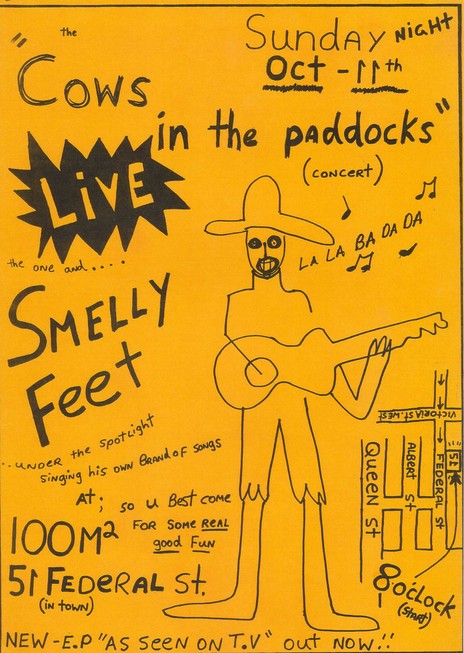 Sunday Night
Oct - 11th
" the
Cows
in the paddocks"
(concert)
LIVE
the one and....
Smelly
Feet
LA LA BA DA DA
..under the spotlight
singing his own Brand of songs
At; so u Best come
For some real
good Fun
100m²
51 Federal St.
(in town)
Victoria St. West
51
Federal St
Albert St
Queen St
8 o'clock
(start)
New - E.P "As seen on T.V" out now!!